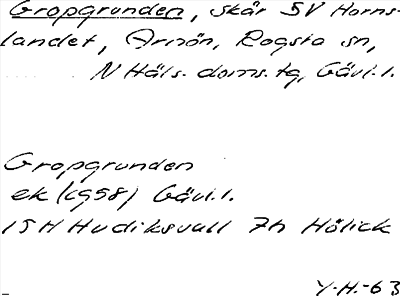 Gropgrunden, skär SV Horns-
landet, Arnön, Rogsta sn,
N Häls. doms. tg, Gävl.l.
Gropgrunden
ek (1958) Gävl.l.
15H Hudiksvall 7h Hölick
Y.H.-63